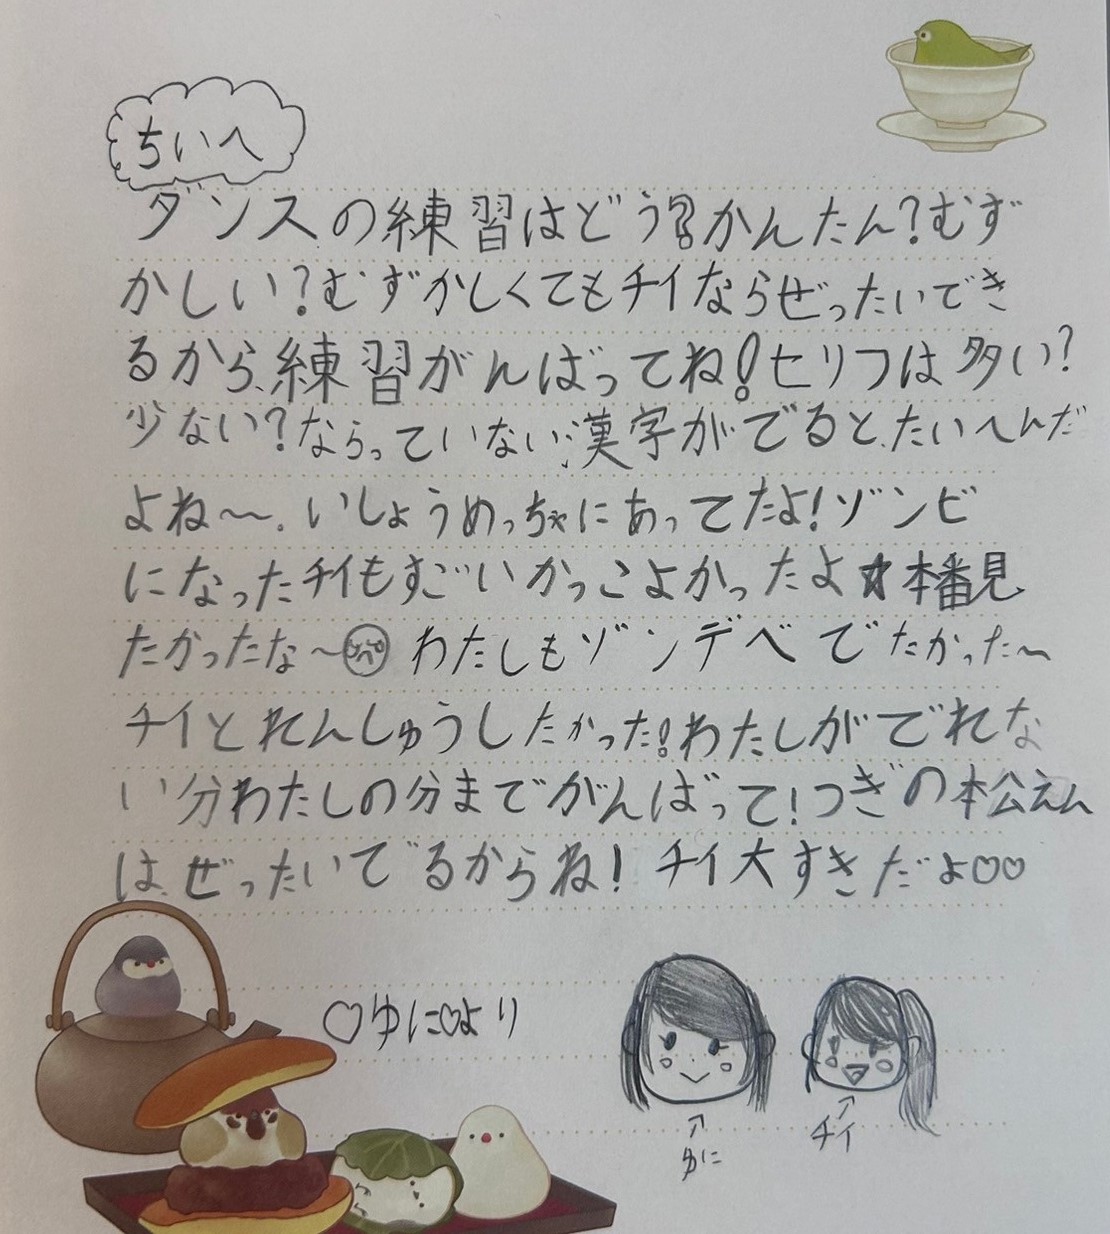 ちいへ
ダンスの練習はどう?かんたん?むず
かしい?むずかしくてもチイならぜったいでき
るから、練習がんばってね!セリフは多い?
少ない?ならっていない漢字がでると、たいへんだ
よね〜。いしょうめっちゃにあってたよ!ゾンビ
になったチイもすごいかっこよかったよ☆本番見
たかったな〜 わたしもゾンデベでたかった〜
チイとれんしゅうしたかった!わたしがでれな
い分わたしの分までがんばって!つぎの本公えん
は、ぜったいでるからね! チイ大すきだよ♡♡
♡ゆに♡より
ゆに
チイ